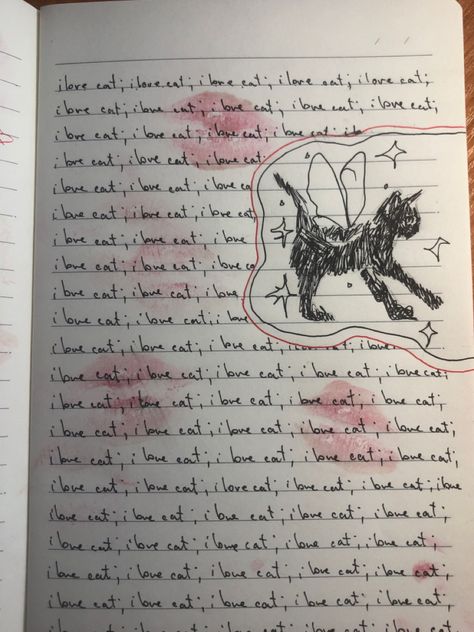 i love cat; i love cat; i love cat; i love cat; i love cat;
i love cat; i love cat; i love cat; i love cat; i love cat;
i love cat; i love cat; i love cat; i love cat; i lo
i love cat; i love cat; i love cat;
i love cat; i love cat; i love ca
i love cat; i love cat; i love cat;
i love cat; i love cat; i love cat;
i love cat; i love cat; i love ca
i love cat; i love cat; i love cat;
i love cat; i love cat; i love
i love cat; i love cat; i love cat; i love cat; i love
i love cat; i love cat; i love cat; i love cat; i love cat;
i love cat; i love cat; i love cat; i love cat; i love cat;
i love cat; i love cat; i love cat; i love cat; i love cat;
i love cat; i love cat; i love cat; i love cat; i love cat;
i love cat; i love cat; i love cat; i love cat; i love cat; i love
i love cat; i love cat; i love cat; i love cat; i love cat;
i love cat; i love cat; i love cat; i love cat; i love cat;
i love cat; i love cat; i love cat; i love cat; i love cat;
i love cat; i love cat; i love cat; i love cat; i love cat;
i love cat; i love cat; i love cat; i love cat; i love cat;